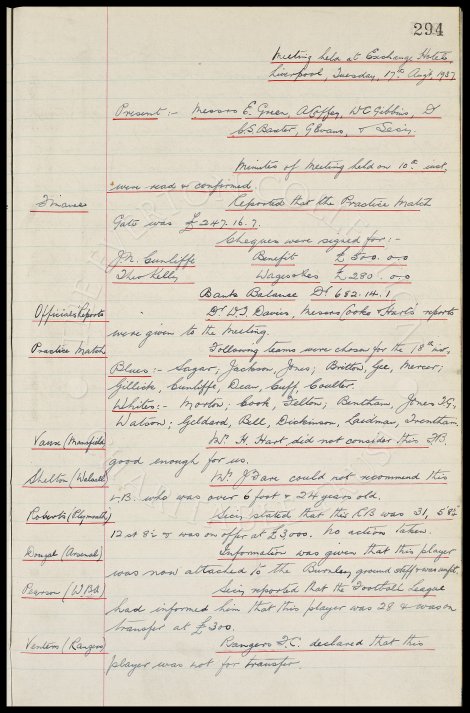 294
Meeting held at Exchange Hotel
Liverpool, Tuesday, 17th Aug't, 1937
Present :- Messrs E. Green, A Coffey, W C Gibbins, Dr
C.S. Baxter, G Evans, & Secy.
Minutes of Meeting held on 10th inst,
were read & confirmed
Finances
Reported that the Practice Match
Gate was £247. 16. 7.
Cheques were signed for :-
J.N. Cunliffe Benefit £500. 0. 0
Theo Kelly Wages &c £280. 0. 0
Bank Balance Dr 682. 14. 1
Officials' Reports
Dr W.J. Davies, Messrs Cooke & Hart's reports
were given to the Meeting.
Practice Match
Following teams were chosen for the 18th inst,
Blues :- Sagar; Jackson, Jones; Britton, Gee, Mercer;
Gillick, Cunliffe, Dean, Cuff, Coulter.
Whites :- Morton; Cook, Felton; Bentham, Jones T.G.,
Watson; Geldard, Bell, Dickinson, Laidman, Trentham.
(Mansfield)
Mr. H. Hart did not consider this FB.
good enough for us.
Shelton (Walsall)
Mr J Fare could not recommend this
LB. who was over 6 foot & 24 years old.
Roberts (Plymouth)
Secy stated that this RB was 31, 5'8½
12 st 8½ & was on offer at £3000. No action taken.
(Arsenal)
Information was given that this player
was now attached to the Burnley ground staff & was unfit.
Pearson (WBA)
Secy reported that the Football League
had informed him that this player was 28 & was on
transfer at £300.
Venters (Rangers)
Rangers F.C. declared that this
player was not for transfer.